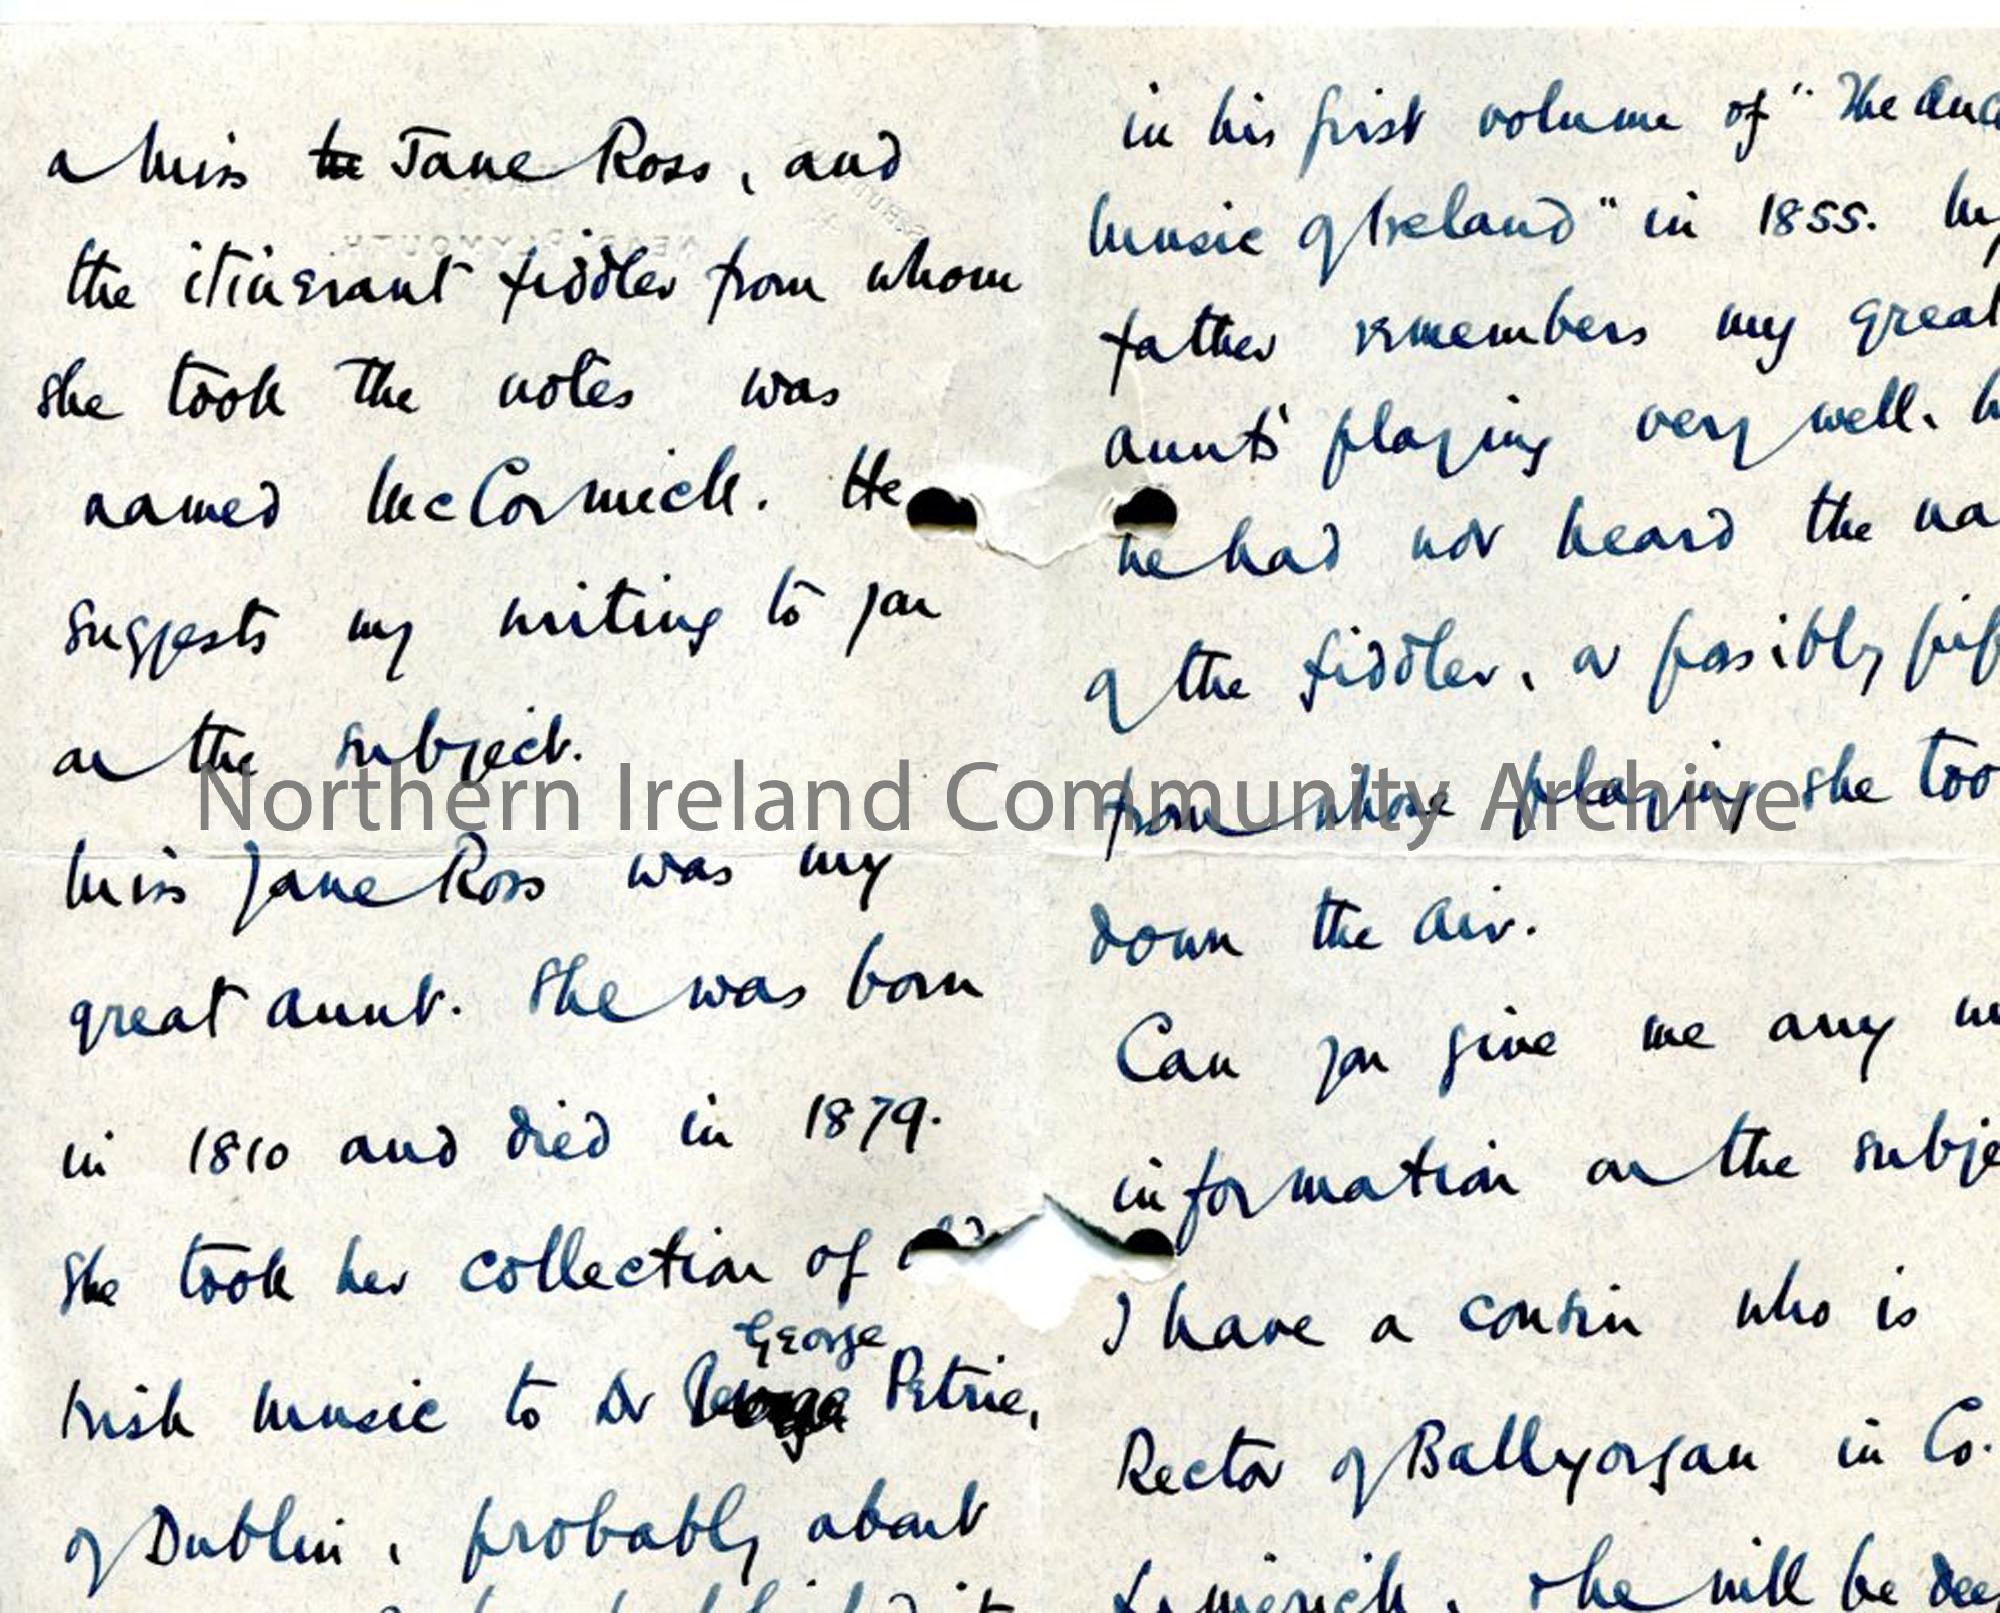 a Miss Jane Ross, and
the itinerant fiddler from whom
she took the notes was
named McCormick. He
suggests my writing to you
on the subject.
Miss Jane Ross was my
great aunt. She was born
in 1810 and died in 1879.
She took her collection of
Irish music to Dr George Petrie,
of Dublin, probably about
in his first volume of "The
Music of Ireland" in 1855. My
father remembers my great
aunts' playing very well.
he had not heard the
of the fiddler, or possibly
from whose playing she
down the air.
Can you give me any
information on the
I have a cousin who is
Rector of Ballyorgan in Co.
Limerick, she will be
Northern Ireland Community Archive